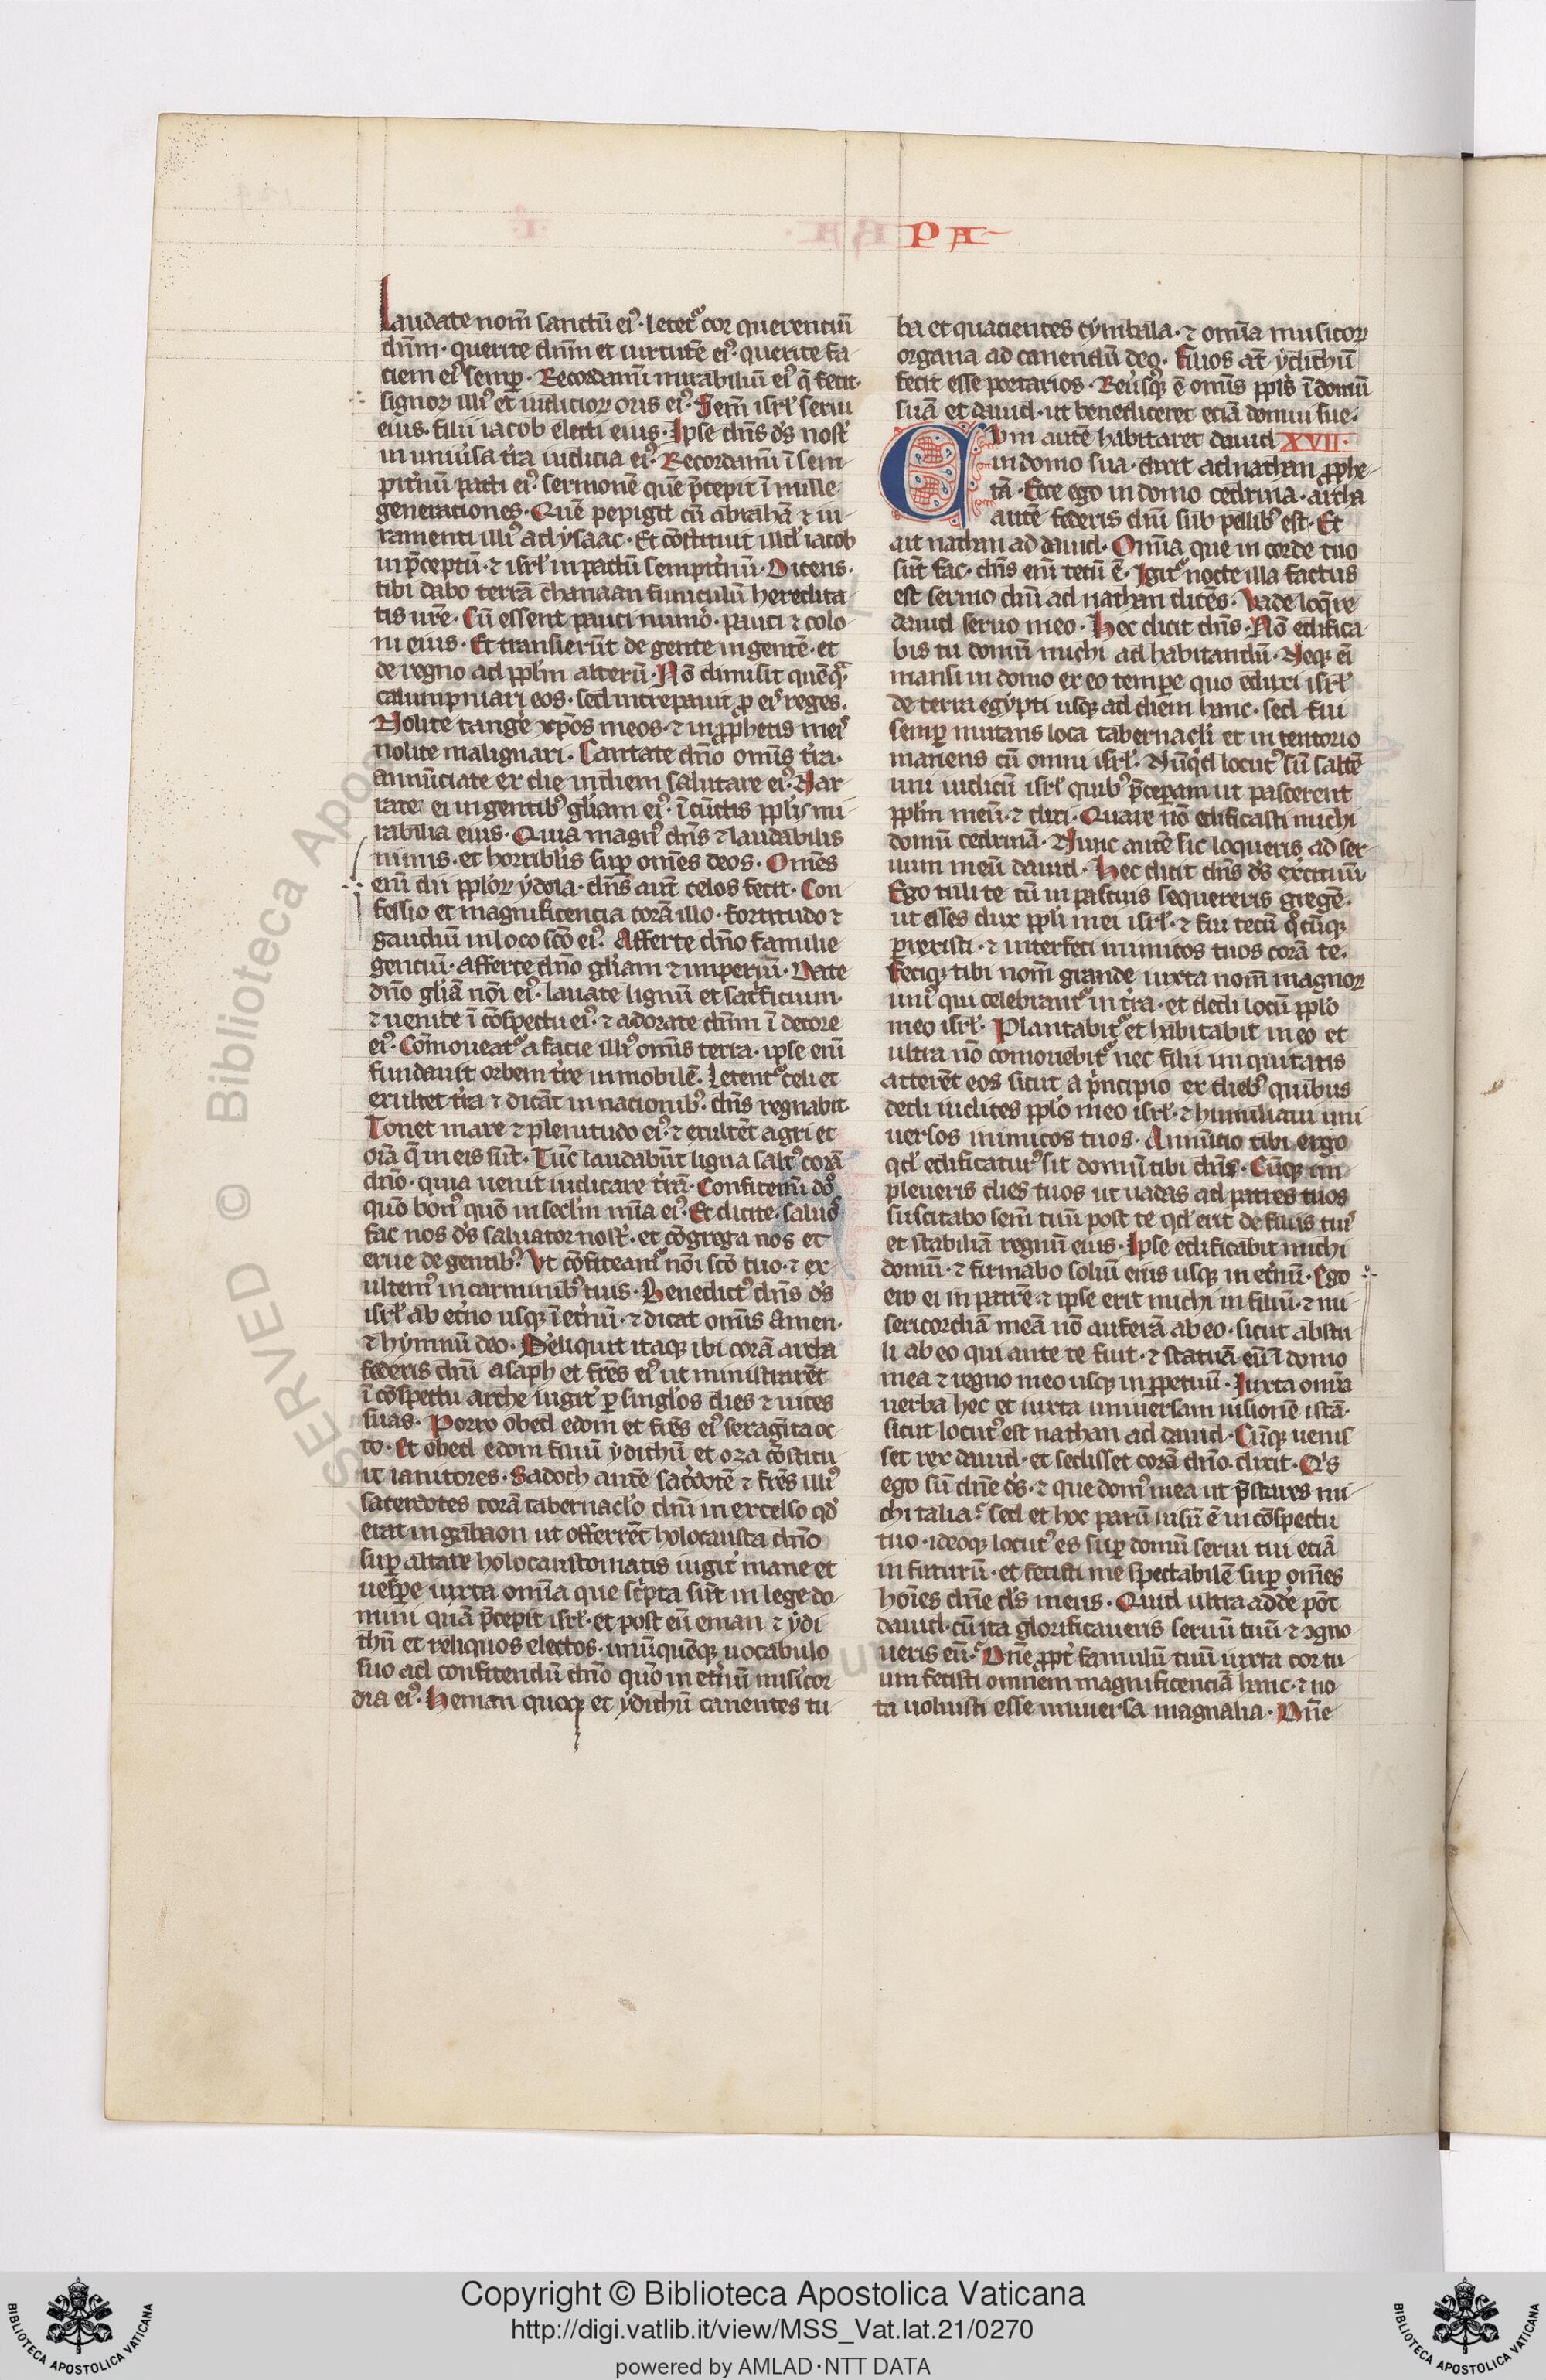 PA
Laudate nom̄ sanctū ei᷒. letet᷒ cor querentiū
dn̄m. querite dn̄m et uirtutē ei᷒. querite fa
ciem ei᷒ semꝑ. Recordamī mirabiliū ei᷒ q̄ fecit.
signoꝝ illi᷒ et iudicioꝝ oris ei᷒. Sem̄ isrl̓ serui
eius. filii iacob electi eius. Ipse dn̄s ds̓ nost̓
in uniu̓sa tr̓a iudicia ei᷒. Recordamī ī sem
pit̓nū pacti ei᷒. sermonē quē p̄cepit ī mille
generaciones. Quē pepigit cū abrahā ⁊ iu
ramenti illi᷒ ad ysaac. Et cōstituit illd̓ iacob
in p̄ceptū. ⁊ isrl̓ in pactū sempit̓nū. Dicens.
tibi dabo terrā chanaan funiculū heredita
tis ur̄e. Cū essent pauci nūmo᷒. pauci ⁊ colo
ni eius. Et transierūt de gente in gentē. et
de regno ad ppl̓m alterū. Nō dimisit quēq̄
calumpniari eos. sed increpauit ꝓ ei᷒ reges.
Nolite tangͤe xp̄os meos. ⁊ in ꝓphetis meis
nolite malignari. Cantate dn̄o om̄is tr̓a.
annūciate ex die in diem salutare ei᷒. Nar
rate ei in gentib᷒ gl̓iam ei᷒. ī cūctis ppl̓is mi
rabilia eius. Quia magn᷒ dn̄s ⁊ laudabilis
nimis. et horribl̓is suꝑ om̄es deos. Om̄es
enī dii ppl̓oꝝ ydola. dn̄s aut̄ celos fecit. Con
fessio et magnificencia corā illo. fortitudo ⁊
gaudiū in loco scō ei᷒. Afferte dn̄o familie
gentiū. afferte dn̄o gl̓iam ⁊ imperiū. Date
dn̄o gl̓iā nōi ei᷒. leuate lignū et sac̓ficium.
⁊ uenite ī cōspectu ei᷒. ⁊ adorate dn̄m ī decore
ei᷒. Cōmoueat᷒ a facie illi᷒ om̄is terra. ipse enī
fundauit orbem tr̓e inmobilē. Letent᷒ celi et
exultet tr̓a ⁊ dicāt in nacionib᷒. dn̄s regnabit
Tonet mare ⁊ plenitudo ei᷒. ⁊ exultēt agri et
oīa q̄ in eis sūt. Tūc laudabūt ligna salt᷒ corā
dn̄o. quia uenit iudicare tr̓ā. Confitemī do᷒
quō bon᷒ quō in secl̓m mīa ei᷒. Et dicite. salua
fac nos ds̓ saluator nost̓. et cōgrega nos et
erue de gentib᷒. Vt cōfiteam᷒ nōi scō tuo. ⁊ ex
ultem᷒ in carminib᷒ tuis. Benedict᷒ dn̄s ds̓
isrl̓ ab et̓no usqꝫ ī et̓nū. ⁊ dicat om̄is Amen.
⁊ hymnū deo. Deliquit itaqꝫ ibi corā archa
federis dn̄i asaph et fr̄es ei᷒ ut ministrarēt
ī cōspectu arche iugit̓ ꝑ singl̓os dies ⁊ uices
suas. Porro obed edom et fr̄es ei᷒ sexagīta oc
to. Et obed edom filiū ydithū et oza cōstitu
it ianitores. Sadoch autē sac̓dotē ⁊ fr̄es illi᷒
sacerdotes corā tabernacl̓o dn̄i in excelso qd̓
erat in gabaon ut offerrēt holocausta dn̄o
suꝑ altare holocaustomatis iugit̓ mane et
uesꝑe iuxta om̄ia que sc̓pta sūt in lege do
mini quā p̄cepit isrl̓. et post eū eman ⁊ ydi
thū et reliquos electos. unūquēqꝫ uocabulo
suo ad confitendū dn̄o quō in et̓nū misicor
dia ei᷒. Heman quoqꝫ et ydithū canentes tu
ba et quacientes cymbala. ⁊ om̄ia musicoꝝ
organa ad canendū deo. Filios at̄ ydithū
fecit esse portarios. Reu̓sqꝫ ē om̄is ppl̓s ī domū
suā et dauid. ut benediceret eciā domui sue.
Cvm autē habitaret dauid XVII.
in domo sua. dixit ad nathan ꝓphe
tā. Ecce ego in domo cedrina. archa
autē federis dn̄i sub pellib᷒ est. Et
ait nathan ad dauid. Om̄ia que in corde tuo
sūt fac. dn̄s enī tecū ē. Igit᷒ nocte illa factus
est sermo dn̄i ad nathan dicēs. Vade loqͤre
dauid seruo meo. Hec dicit dn̄s. Nō edifica
bis tu domū michi ad habitandū. Neqꝫ eī
mansi in domo ex eo tempe quo eduxi isrl̓
de terra egypti usqꝫ ad diem hanc. sed fui
semꝑ mutans loca tabernacl̓i et in tentorio
manens cū omni isrl̓. Nūqd locut᷒ sū saltē
uni iudicū isrl̓ quib᷒ p̄ceperam ut pascerent
ppl̓m meū. ⁊ dixi. Quare nō edificasti michi
domū cedrinā. Nunc autē sic loqueris ad ser
uum meū dauid. Hec dicit dn̄s ds̓ exercituū
Ego tuli te cū in pascuis sequereris gregē.
ut esses dux ppl̓i mei isrl̓. ⁊ fui tecū q̊cūqꝫ
ꝑrexisti. ⁊ interfeci inimicos tuos corā te.
Feciqꝫ tibi nom̄ grande iuxta nom̄ magnoꝝ
uni᷒ qui celebrant᷒ in tr̓a. et dedi locū ppl̓o
meo isrl̓. Plantabit᷒ et habitabit in eo et
ultra nō comouebit᷒ nec filii iniquitatis
atterēt eos sicut a p̓ncipio ex dieb᷒ quibus
dedi iudices ppl̓o meo isrl̓. ⁊ humiliaui uni
uersos inimicos tuos. Annūcio tibi ergo
qd̓ edificatur᷒ sit domū tibi dn̄s. Cūqꝫ im
pleueris dies tuos ut uadas ad patres tuos
suscitabo sem̄ tuū post te qd̓ erit de filiis tuis
et stabiliā regnū eius. Ipse edificabit michi
domū. ⁊ firmabo soliū eius usqꝫ in et̓nū. Ego
ero ei in patrē. ⁊ ipse erit michi in filiū. ⁊ mi
sericordiā meā nō auferā ab eo. sicut abstu
li ab eo qui ante te fuit. ⁊ statuā eū ī domo
mea ⁊ regno meo usqꝫ in ꝑpetuū. Iuxta om̄ia
uerba hec et iuxta uniuersam uisionē istā.
sicut locut᷒ est nathan ad dauid. Cūqꝫ uenis
set rex dauid. et sedisset corā dn̄o. dixit. Q̓s
ego sū dn̄e ds̓. ⁊ que dom᷒ mea ut p̄stares mi
chi talia. sed et hoc parū uisū ē in cōspectu
tuo. ideoqꝫ locut᷒ es suꝑ domū serui tui eciā
in futurū. et fecisti me spectabilē suꝑ om̄es
hoīes dn̄e ds̓ meus. Quid ultra addͤe pōt
dauid. cū ita glorificaueris seruū tuū ⁊ ↄgno
ueris eū. Dn̄e ꝓpt̓ famulū tuū iuxta cor tu
um fecisti omnem magnificenciā hanc. ⁊ no
ta uoluisti esse uniuersa magnalia. Dn̄e
SERVED © Biblioteca Apos
Copyright © Biblioteca Apostolica Vaticana
http://digi.vatlib.it/view/MSS_Vat.lat.21/0270
powered by AMLAD·NTT DATA
BIBLIOTECA APOSTOLICA VATICANA
BIBLIOTECA APOSTOLICA VATICANA